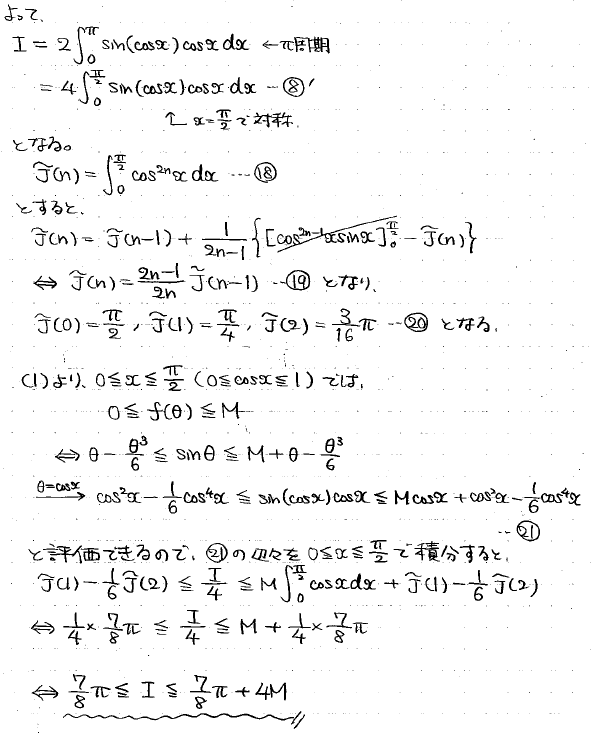 よって、
I = 2∫_0^π sin(cosx)cosx dx ←π周期
= 4∫_0^{π/2} sin(cosx)cosx dx …⑧'
↑ x=π/2で対称
となる。
J̃(n) = ∫_0^{π/2} cos^{2n}x dx …⑱
とすると、
J̃(n) = J̃(n-1) + 1/(2n-1) {[cos^{2n-1}x sinx]_0^{π/2} - J̃(n)}
⇔ J̃(n) = (2n-1)/(2n) J̃(n-1) …⑲ となり、
J̃(0) = π/2, J̃(1) = π/4, J̃(2) = 3/16 π …⑳ となる。
(1)より、0≦x≦π/2 (0≦cosx≦1) では、
0 ≦ f(θ) ≦ M
⇔ θ - θ³/6 ≦ sinθ ≦ M + θ - θ³/6
θ=cosx → cos²x - 1/6 cos⁴x ≦ sin(cosx)cosx ≦ Mcosx + cos²x - 1/6 cos⁴x
…㉑
と評価できるので、㉑の辺々を 0≦x≦π/2 で積分すると、
J̃(1) - 1/6 J̃(2) ≦ I/4 ≦ M∫_0^{π/2} cosx dx + J̃(1) - 1/6 J̃(2)
⇔ 1/4 × 7/8 π ≦ I/4 ≦ M + 1/4 × 7/8 π
⇔ 7/8 π ≦ I ≦ 7/8 π + 4M